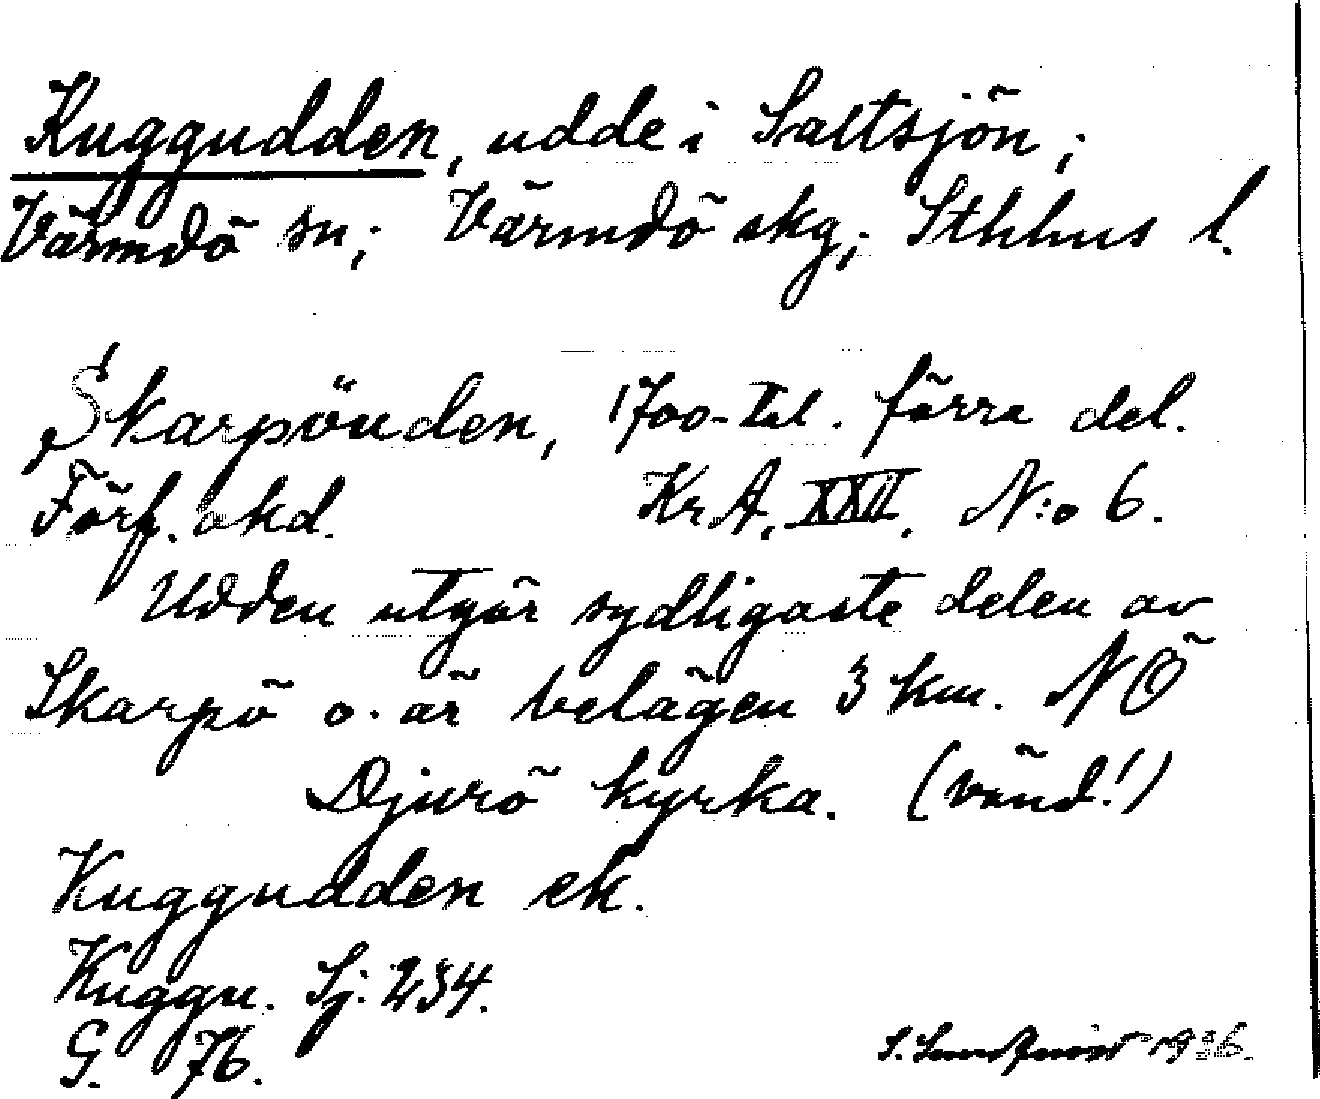 Kuggudden, udde i Saltsjön;
Värmdö sn; Värmdö skg; Sthlms l.
Skarpöudden, 1700-tal. förra del.
Förf. okd. Kr.A. XXII. N:o 6.
Udden utgör sydligaste delen av
Skarpö o. är belägen 3 km. NÖ
Djurö kyrka. (vänd!)
Kuggudden ek.
Kuggu. Sj. 234.
G. 76.
S. Sundqvist 1936.